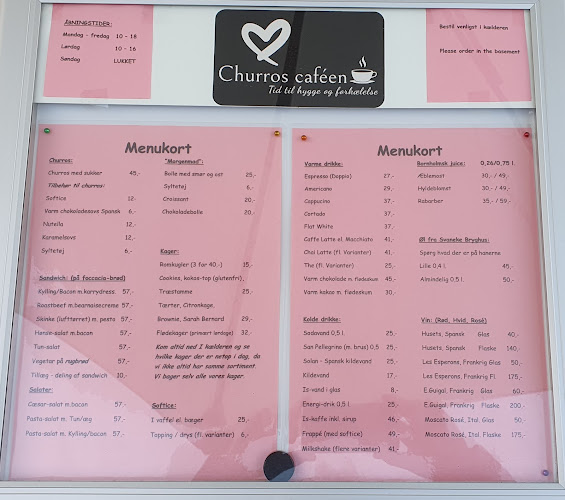 ÅBNINGSTIDER:
Mandag - fredag 10 - 18
Lørdag 10 - 16
Søndag LUKKET
Churros caféen
Tid til hygge og forkælelse
Bestil venligst i kælderen
Please order in the basement
Menukort
Churros:
Churros med sukker 45,-
Tilbehør til churros:
Softice 12-
Varm chokoladesovs Spansk 6,-
Nutella 12,-
Karamelsovs 12,-
Syltetøj 6,-
Sandwich: (på foccacia-brød)
Kylling/Bacon m.karrydress. 57,-
Roastbeef m.bearnaisecreme 57,-
Skinke (lufttørret) m. pesto 57,-
Hønse-salat m.bacon 57,-
Tun-salat 57,-
Vegetar på rugbrød 57,-
Tillæg - deling af sandwich 10,-
Salater:
Cæsar-salat m.bacon 57,-
Pasta-salat m. Tun/æg 57,-
Pasta-salat m. Kylling/bacon 57,-
"Morgenmad":
Bolle med smør og ost 25,-
Syltetøj 6,-
Croissant 20,-
Chokoladebolle 20,-
Kager:
Romkugler (3 for 40,-) 15,-
Cookies, kokos-top (glutenfri),
Træstamme 25,-
Tærter, Citronkage,
Brownie, Sarah Bernard 29,-
Flødekager (primært lørdage). 32,-
Kom altid ned I kælderen og se
hvilke kager der er netop i dag, da
vi ikke altid har samme sortiment.
Vi bager selv alle vores kager.
Softice:
I vaffel el. bæger 25,-
Topping / drys (fl. varianter) 6,-
Menukort
Varme drikke:
Espresso (Doppio) 27,-
Americano 29,-
Cappucino 37,-
Cortado 37,-
Flat White 37,-
Caffe Latte el. Macchiato 41,-
Chai Latte (fl. Varianter) 41,-
The (fl. Varianter) 25,-
Varm chokolade m. flødeskum 45,-
Varm kakao m. flødeskum 30,-
Kolde drikke:
Sodavand 0,5 l. 25,-
San Pellegrino (m. brus) 0,5 25,-
Solan - Spansk kildevand 25,-
Kildevand 17,-
Is-vand i glas 8,-
Energi-drik 0,5 l 25,-
Is-kaffe inkl. sirup 46,-
Frappé (med softice) 49,-
Milkshake (flere varianter) 41,-
Bornholmsk juice: 0,26/0,75 l.
Æblemost 30,- / 49,-
Hyldeblomst 30,- / 49,-
Rabarber 35,- / 59,-
Øl fra Svaneke Bryghus:
Spørg hvad der er på hanerne
Lille 0,4 l. 45,-
Almindelig 0,5 l. 50,-
Vin: (Rød, Hvid, Rosé)
Husets, Spansk Glas 40,-
Husets, Spansk Flaske 140,-
Les Esperons, Frankrig Glas 50,-
Les Esperons, Frankrig Fl. 175,-
E.Guigal, Frankrig Glas 60,-
E.Guigal, Frankrig Flaske 200,-
Moscato Rosé, Ital. Glas 50,-
Moscato Rosé, Ital. Flaske 175,-